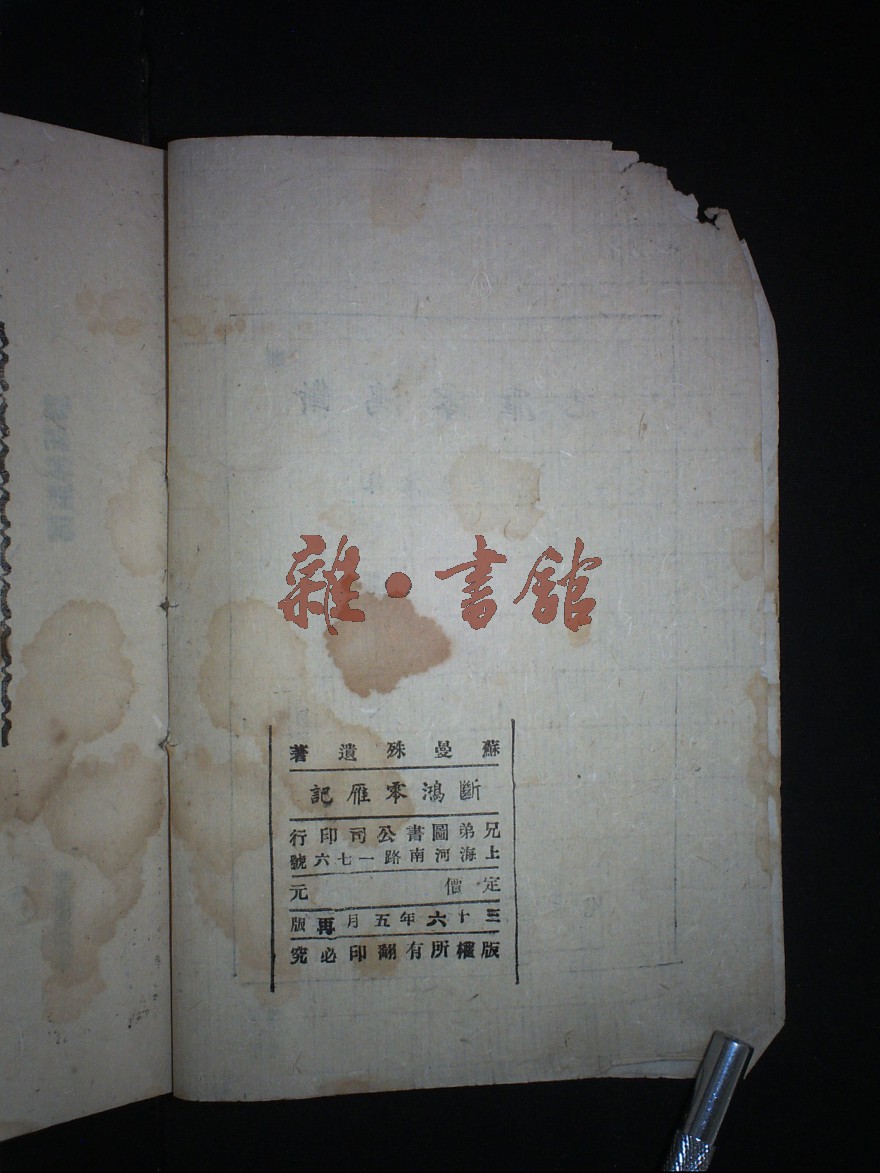 雜·書舘
蘇曼殊遺著
斷鴻零雁記
兄弟圖書公司印行
上海河南路一七六號
定價　　元
三十六年五月再版
版權所有翻印必究